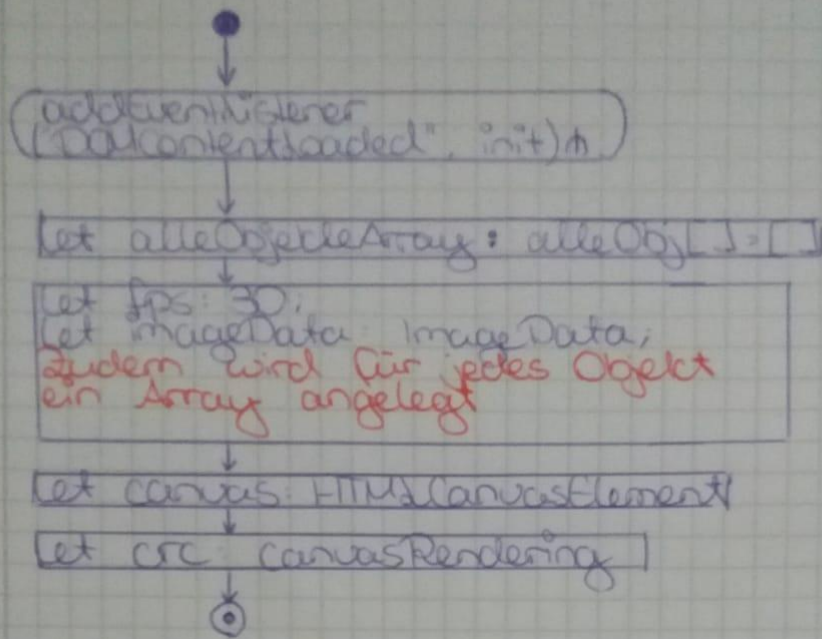 addEventListener
("DOMContentLoaded", init)
let alleObjecteArray: alleObj[] = []
let fps: 30;
let imageData: ImageData;
Zudem wird für jedes Objekt
ein Array angelegt
let canvas: HTMLCanvasElement
let crc: canvasRendering